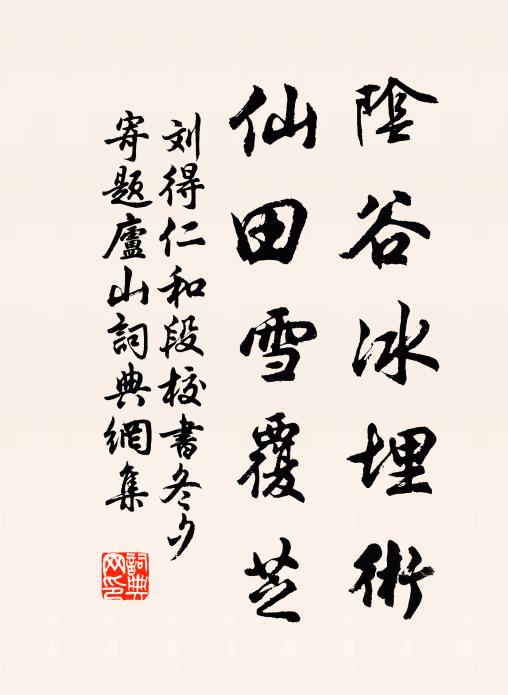 陰谷冰埋術
仙田雪覆芝
刘得仁和段校書冬夕
寄题廬山詞典網集
詞典網印